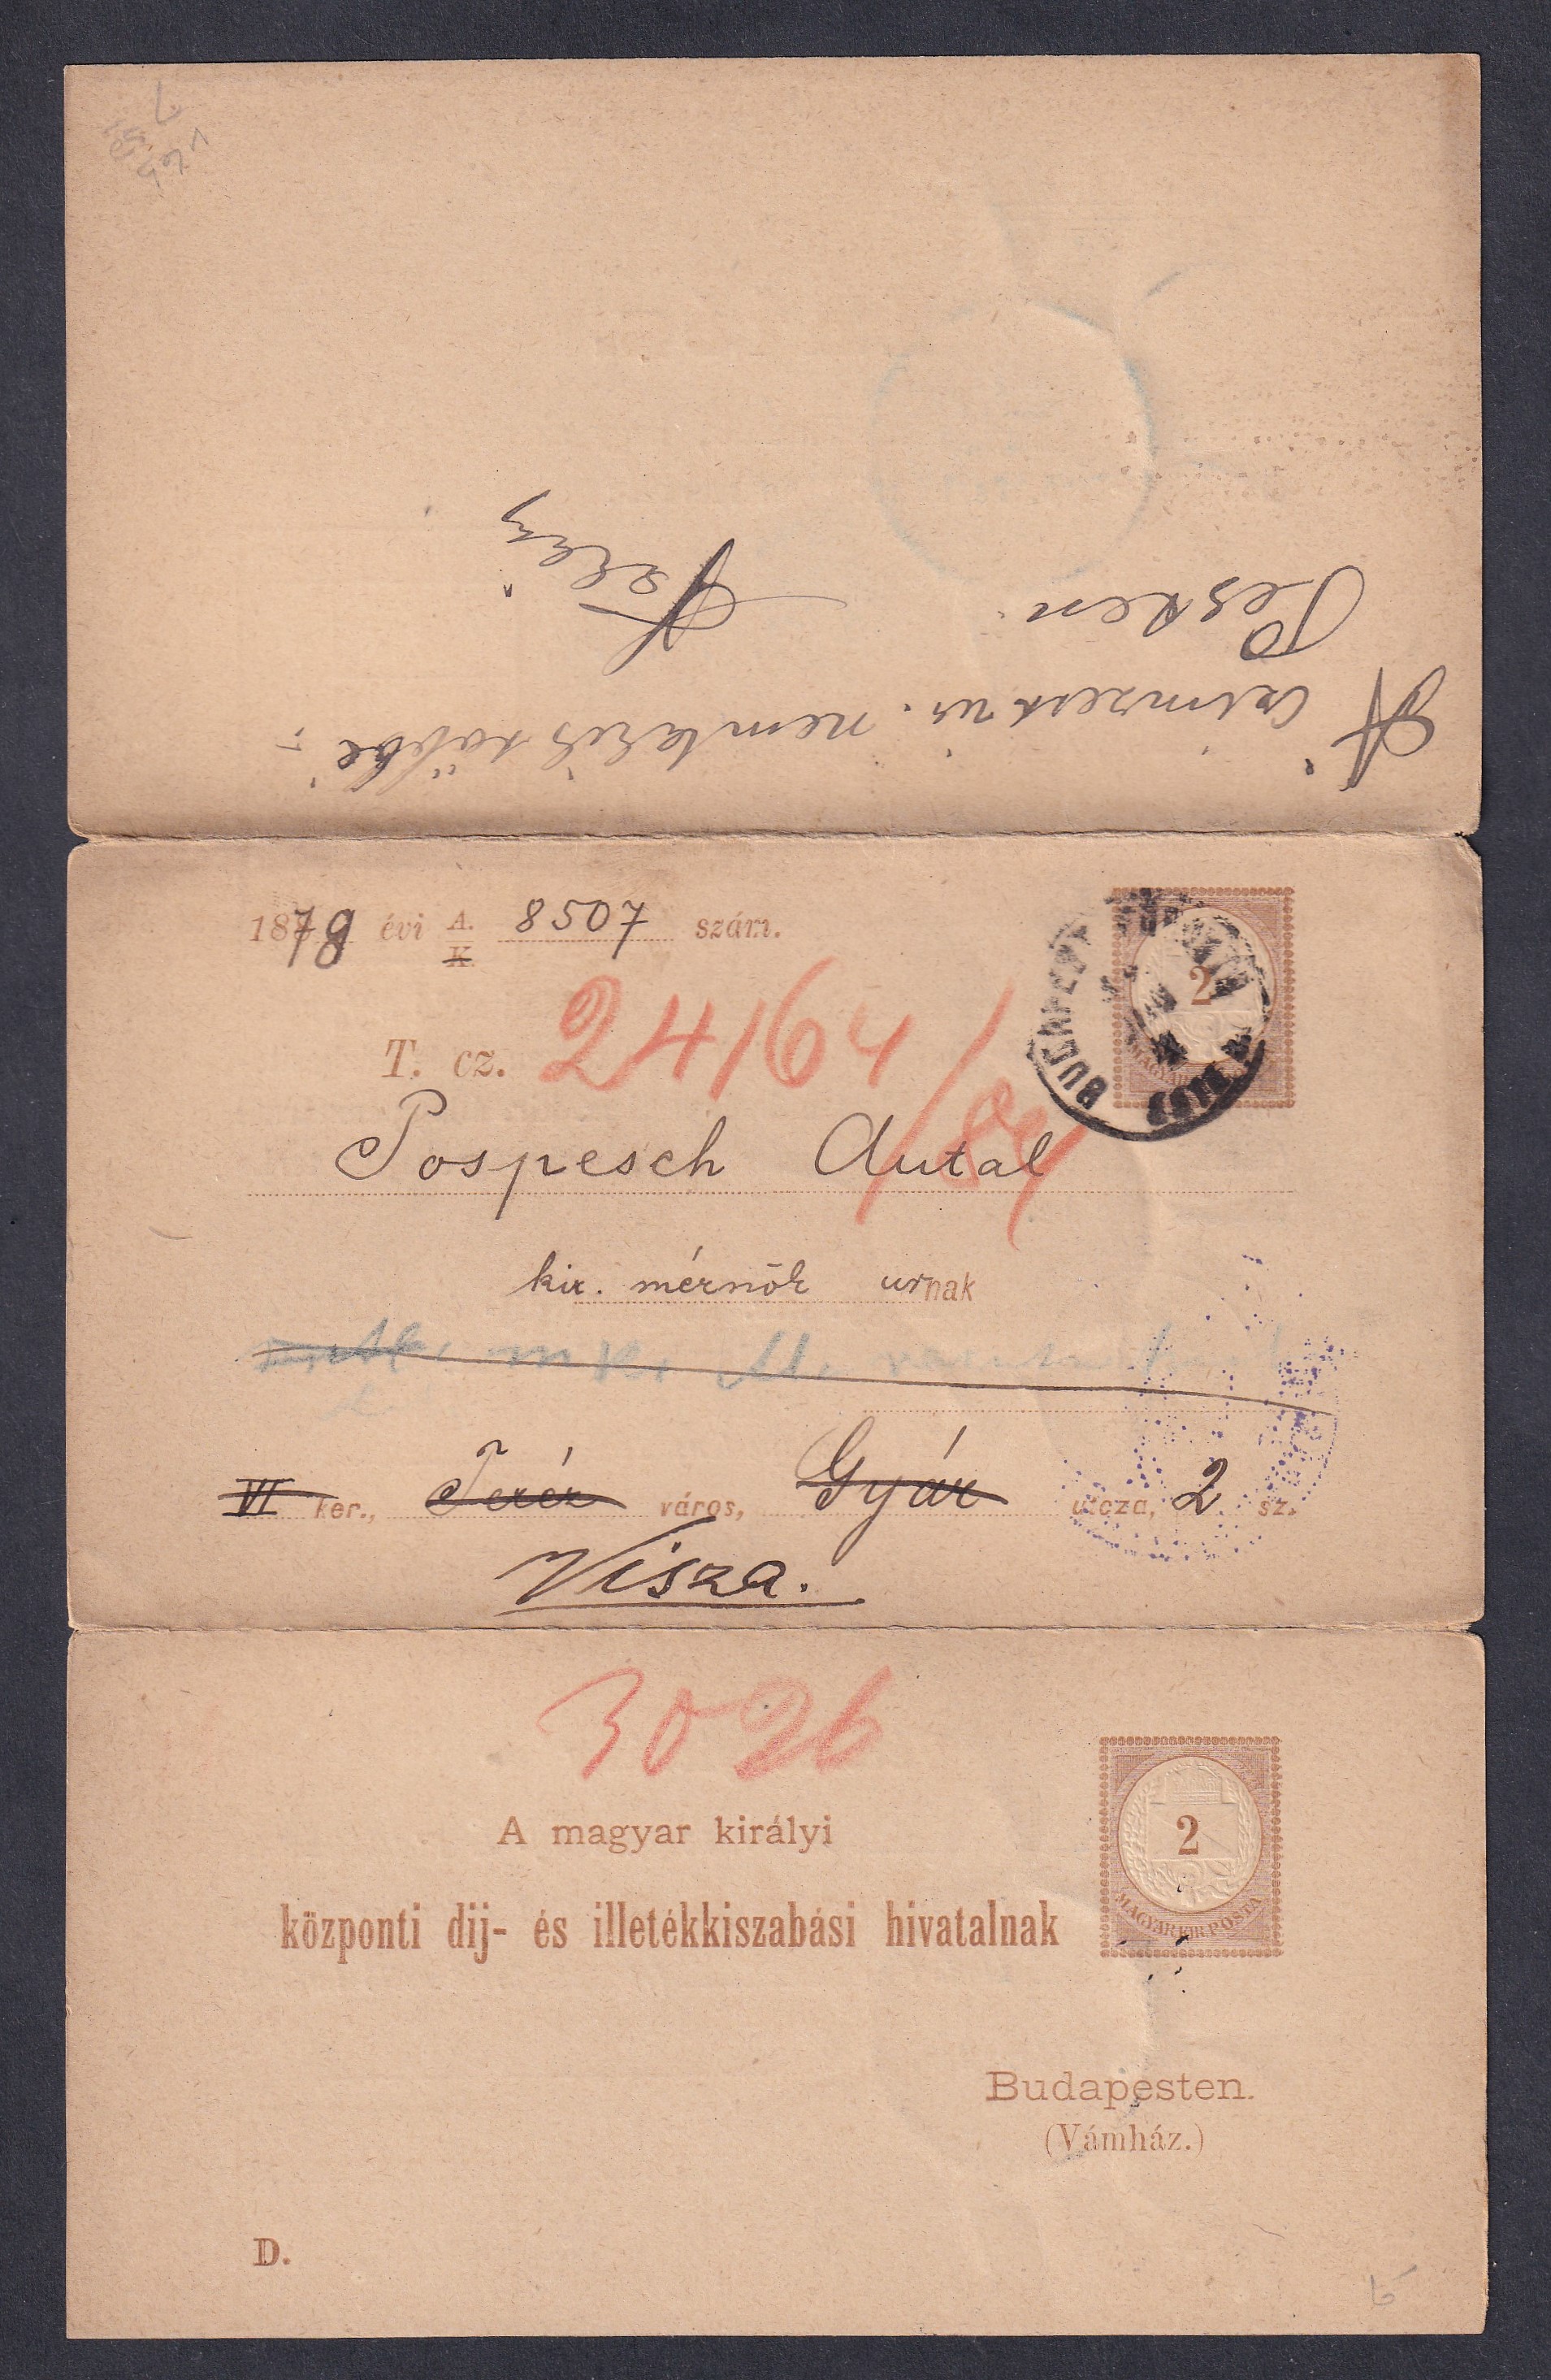 A czimzett ur. nem lakik többé
Pesten.
1879 évi A. 8507 szám.
K.
T. cz. 24164/84
Pospesch Antal
kir. mérnök urnak
VI ker., Teréz város, Gyár utcza, 2 sz.
Visza.
BUDAPEST
2
MAGYAR
3026
2
MAGYAR KIR. POSTA
A magyar királyi
központi dij- és illetékkiszabási hivatalnak
Budapesten.
(Vámház.)
D.